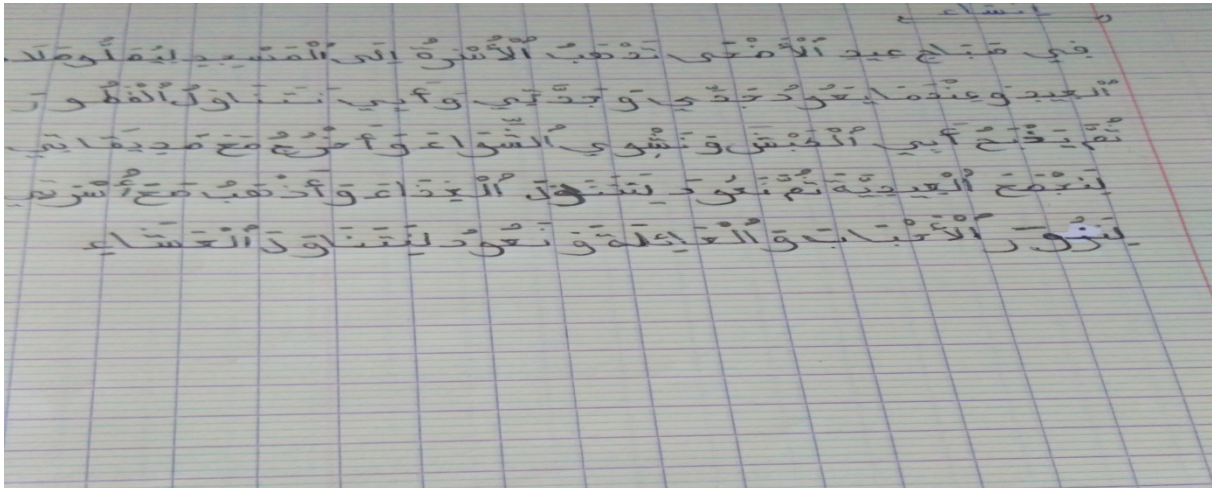 إنشاء
في صباح عيد ٱلْأَضْحَى تَذْهَبُ ٱلْأُسْرَةُ إِلَى ٱلْمَسْجِدِ لِيُصَلُّو صَلَا
ٱلْعِيدِ وَعِنْدَمَا يَعُودُ جَدِّي وَجَدَّتِي وَأَبِي نَتَنَاوَلُ ٱلْفَطُورَ
ثُمَّ يَذْبَحُ أَبِي ٱلْكَبْشَ وَنَشْوِي ٱلشِّوَاءَ وَأَخْرُجُ مَعَ صَدِيقَاتِي
لِنَجْمَعَ ٱلْعِيدِيَّةَ ثُمَّ نَعُودَ لِنَتَنَوَلَ ٱلْغِذَاءَ وَأَذْهَبُ مَعَ أُسْرَتِي
لِنَزُورَ ٱلْأَحْبَابَ وَٱلْعَائِلَةَ وَنَعُودُ لِنَتَنَاوَلَ ٱلْعَشَاءِ